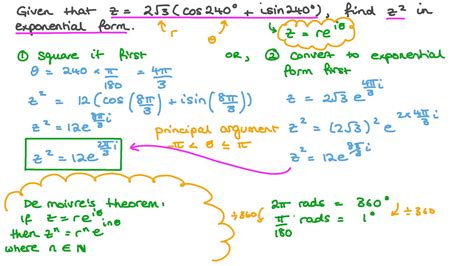 Given that z = 2√3 (cos240° + isin240°), find z² in
exponential form.
r
θ
z = re^iθ
① Square it first
OR,
② Convert to exponential
form first
θ = 240 × π/180 = 4π/3
z² = 12(cos(8π/3) + isin(8π/3))
z² = 12e^(8π/3 i)
z² = 12e^(2π/3 i)
principal argument
-π < θ ≤ π
z = 2√3 e^(4π/3 i)
z² = (2√3)² e^(2×4π/3 i)
z² = 12e^(8π/3 i)
De moivre's theorem:
if z = re^iθ
then zⁿ = rⁿe^inθ
where n ∈ ℕ
÷360
2π rads = 360°
÷360
π/180 rads = 1°